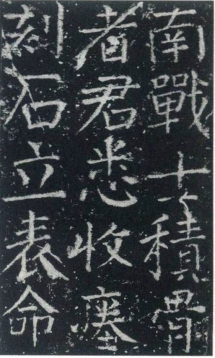 南戰士積骨
者君悉收塞
刻石立表命